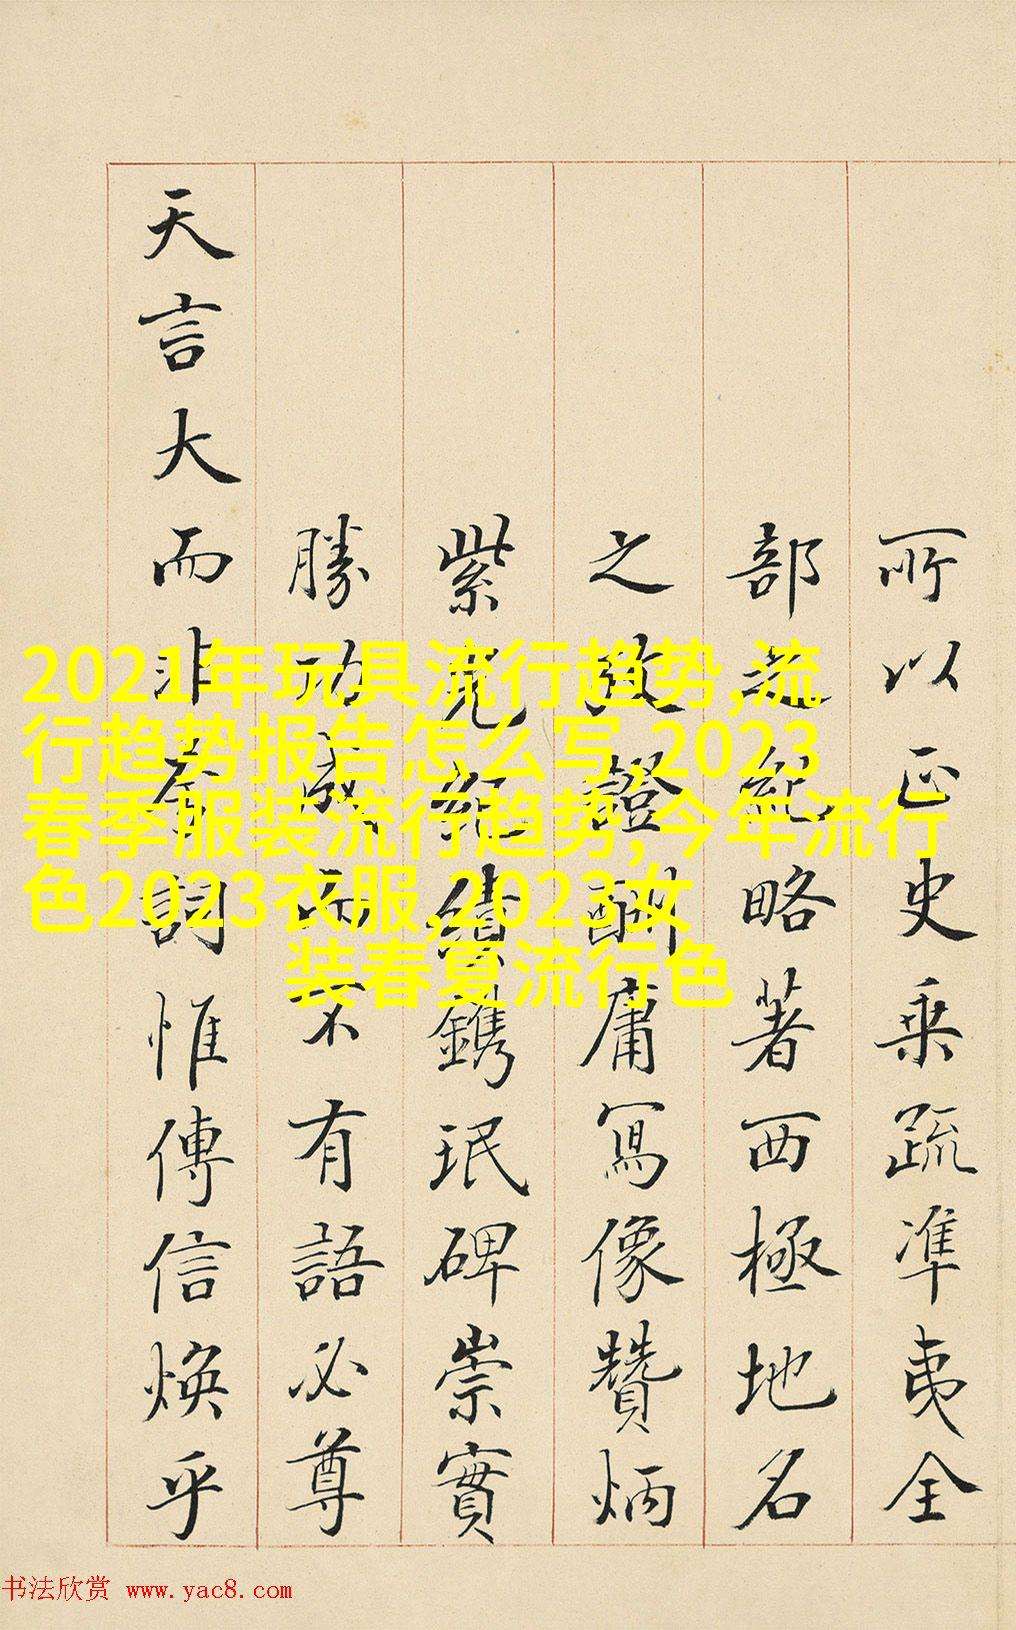 所以正史乘疏準夷全
部流紀略著西極地名
之攷證酬庸寫像贊炳
紫光紀績鐫珉碑崇實
勝功成而不有語必尊
天言大而非夸詞惟傳信煥乎
2021年玩具流行趋势,流
行趋势报告怎么写,2023
春季服装流行趋势,今年流行
色2023衣服,2023女
装春夏流行色
书法欣赏 www.yac8.com